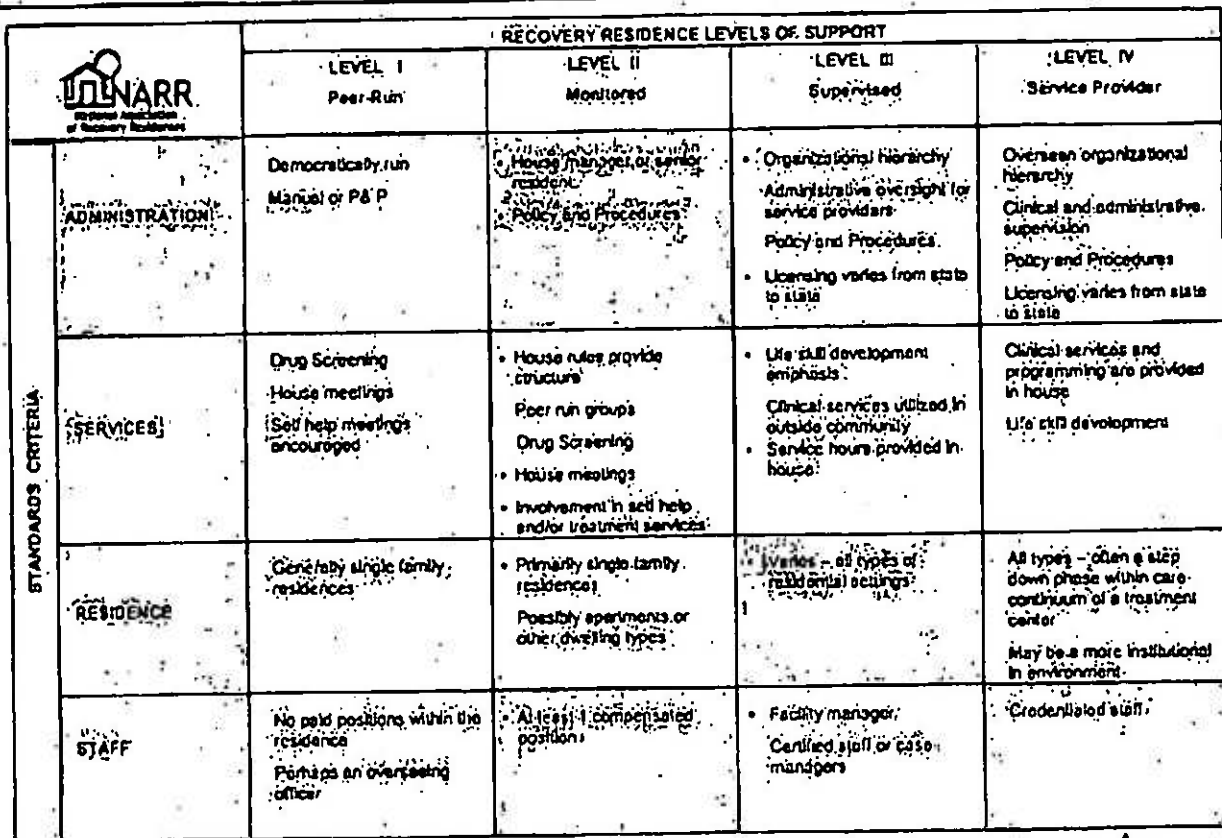 RECOVERY RESIDENCE LEVELS OF SUPPORT
NARR
National Association
of Recovery Residences
LEVEL I
Peer-Run
LEVEL II
Monitored
LEVEL III
Supervised
LEVEL IV
Service Provider
STANDARDS CRITERIA
ADMINISTRATION
Democratically run
Manual or P& P
• House manager or senior
resident
• Policy and Procedures
• Organizational hierarchy
Administrative oversight for
service providers
Policy and Procedures
• Licensing varies from state
to state
Overseen organizational
hierarchy
Clinical and administrative
supervision
Policy and Procedures
Licensing varies from state
to state
SERVICES
Drug Screening
House meetings
Self help meetings
encouraged
• House rules provide
structure
Peer run groups
Drug Screening
• House meetings
• Involvement in self help
and/or treatment services
• Life skill development
emphasis
Clinical services utilized in
outside community
• Service hours provided in
house
Clinical services and
programming are provided
in house
Life skill development
RESIDENCE
Generally single family
residences
• Primarily single family
residences
Possibly apartments or
other dwelling types
Varies – all types of
residential settings
All types – often a step
down phase within care
continuum of a treatment
center
May be a more institutional
in environment
STAFF
No paid positions within the
residence
Perhaps an overseeing
officer
• At least 1 compensated
position
• Facility manager
Certified staff or case
managers
Credentialed staff